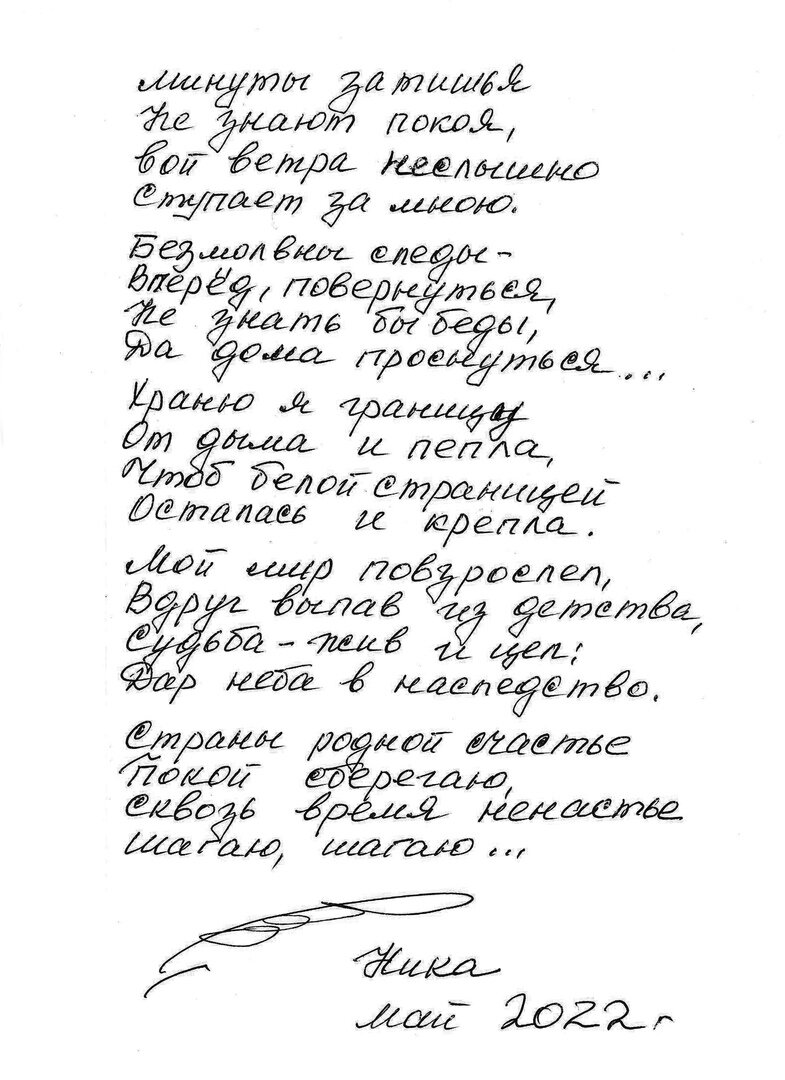 минуты затишья
Не знают покоя,
вой ветра неслышно
Ступает за мною.
Безмолвны следы -
Вперёд, повернуться,
Не знать бы беды,
Да дома проснуться...
Храню я границы
От дыма и пепла,
Чтоб белой страницей
Осталась и крепла.
Мой мир повзрослел,
Вдруг выпав из детства,
Судьба - жив и цел:
Дар неба в наследство.
Страны родной счастье
Покой сберегаю,
Сквозь время ненастье
Шагаю, шагаю...
Ника
май 2022 г